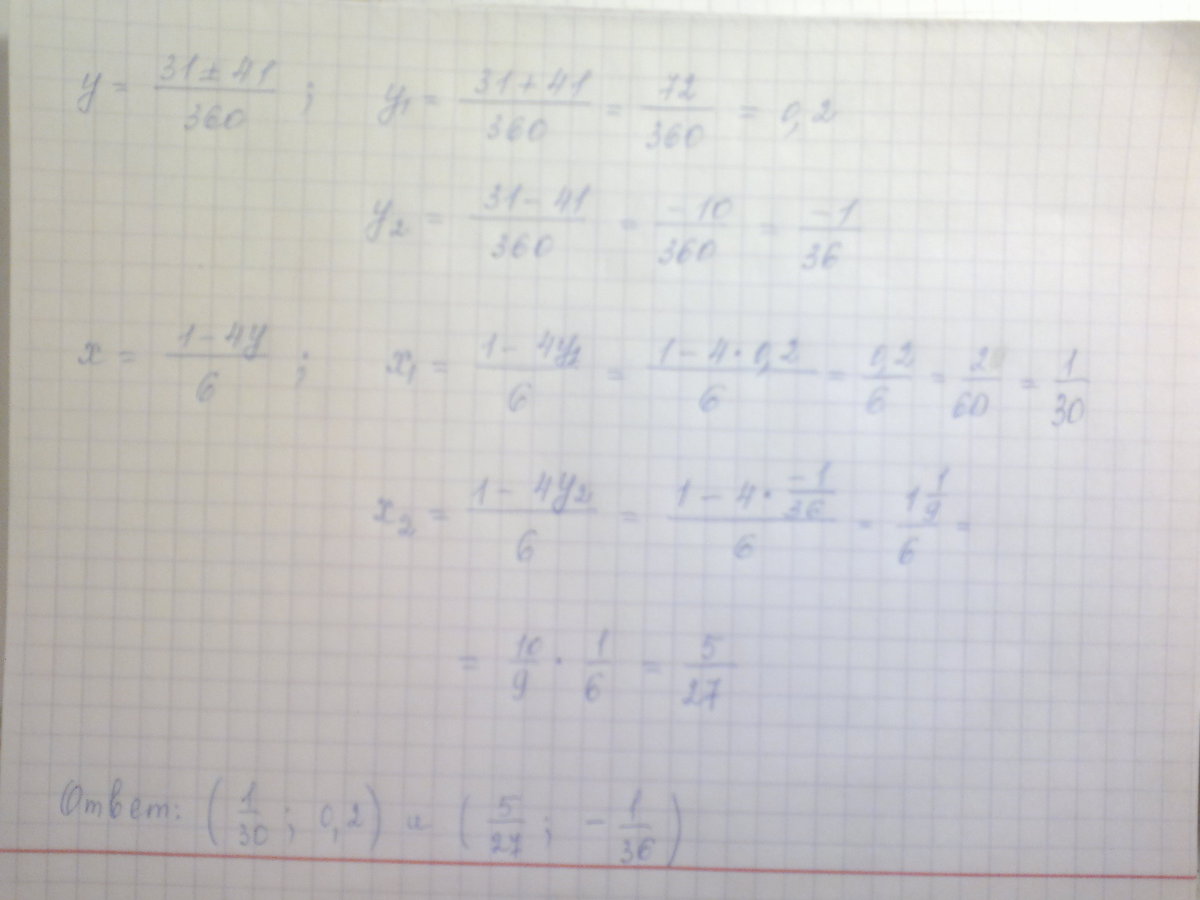 y = (31 ± 41)/360 ; y₁ = (31 + 41)/360 = 72/360 = 0,2
y₂ = (31 - 41)/360 = -10/360 = -1/36
x = (1 - 4y)/6 ; x₁ = (1 - 4y₁)/6 = (1 - 4·0,2)/6 = 0,2/6 = 2/60 = 1/30
x₂ = (1 - 4y₂)/6 = (1 - 4·(-1/36))/6 = (1 1/9)/6 =
= 10/9 · 1/6 = 5/27
Ответ: (1/30 ; 0,2) и (5/27 ; - 1/36)